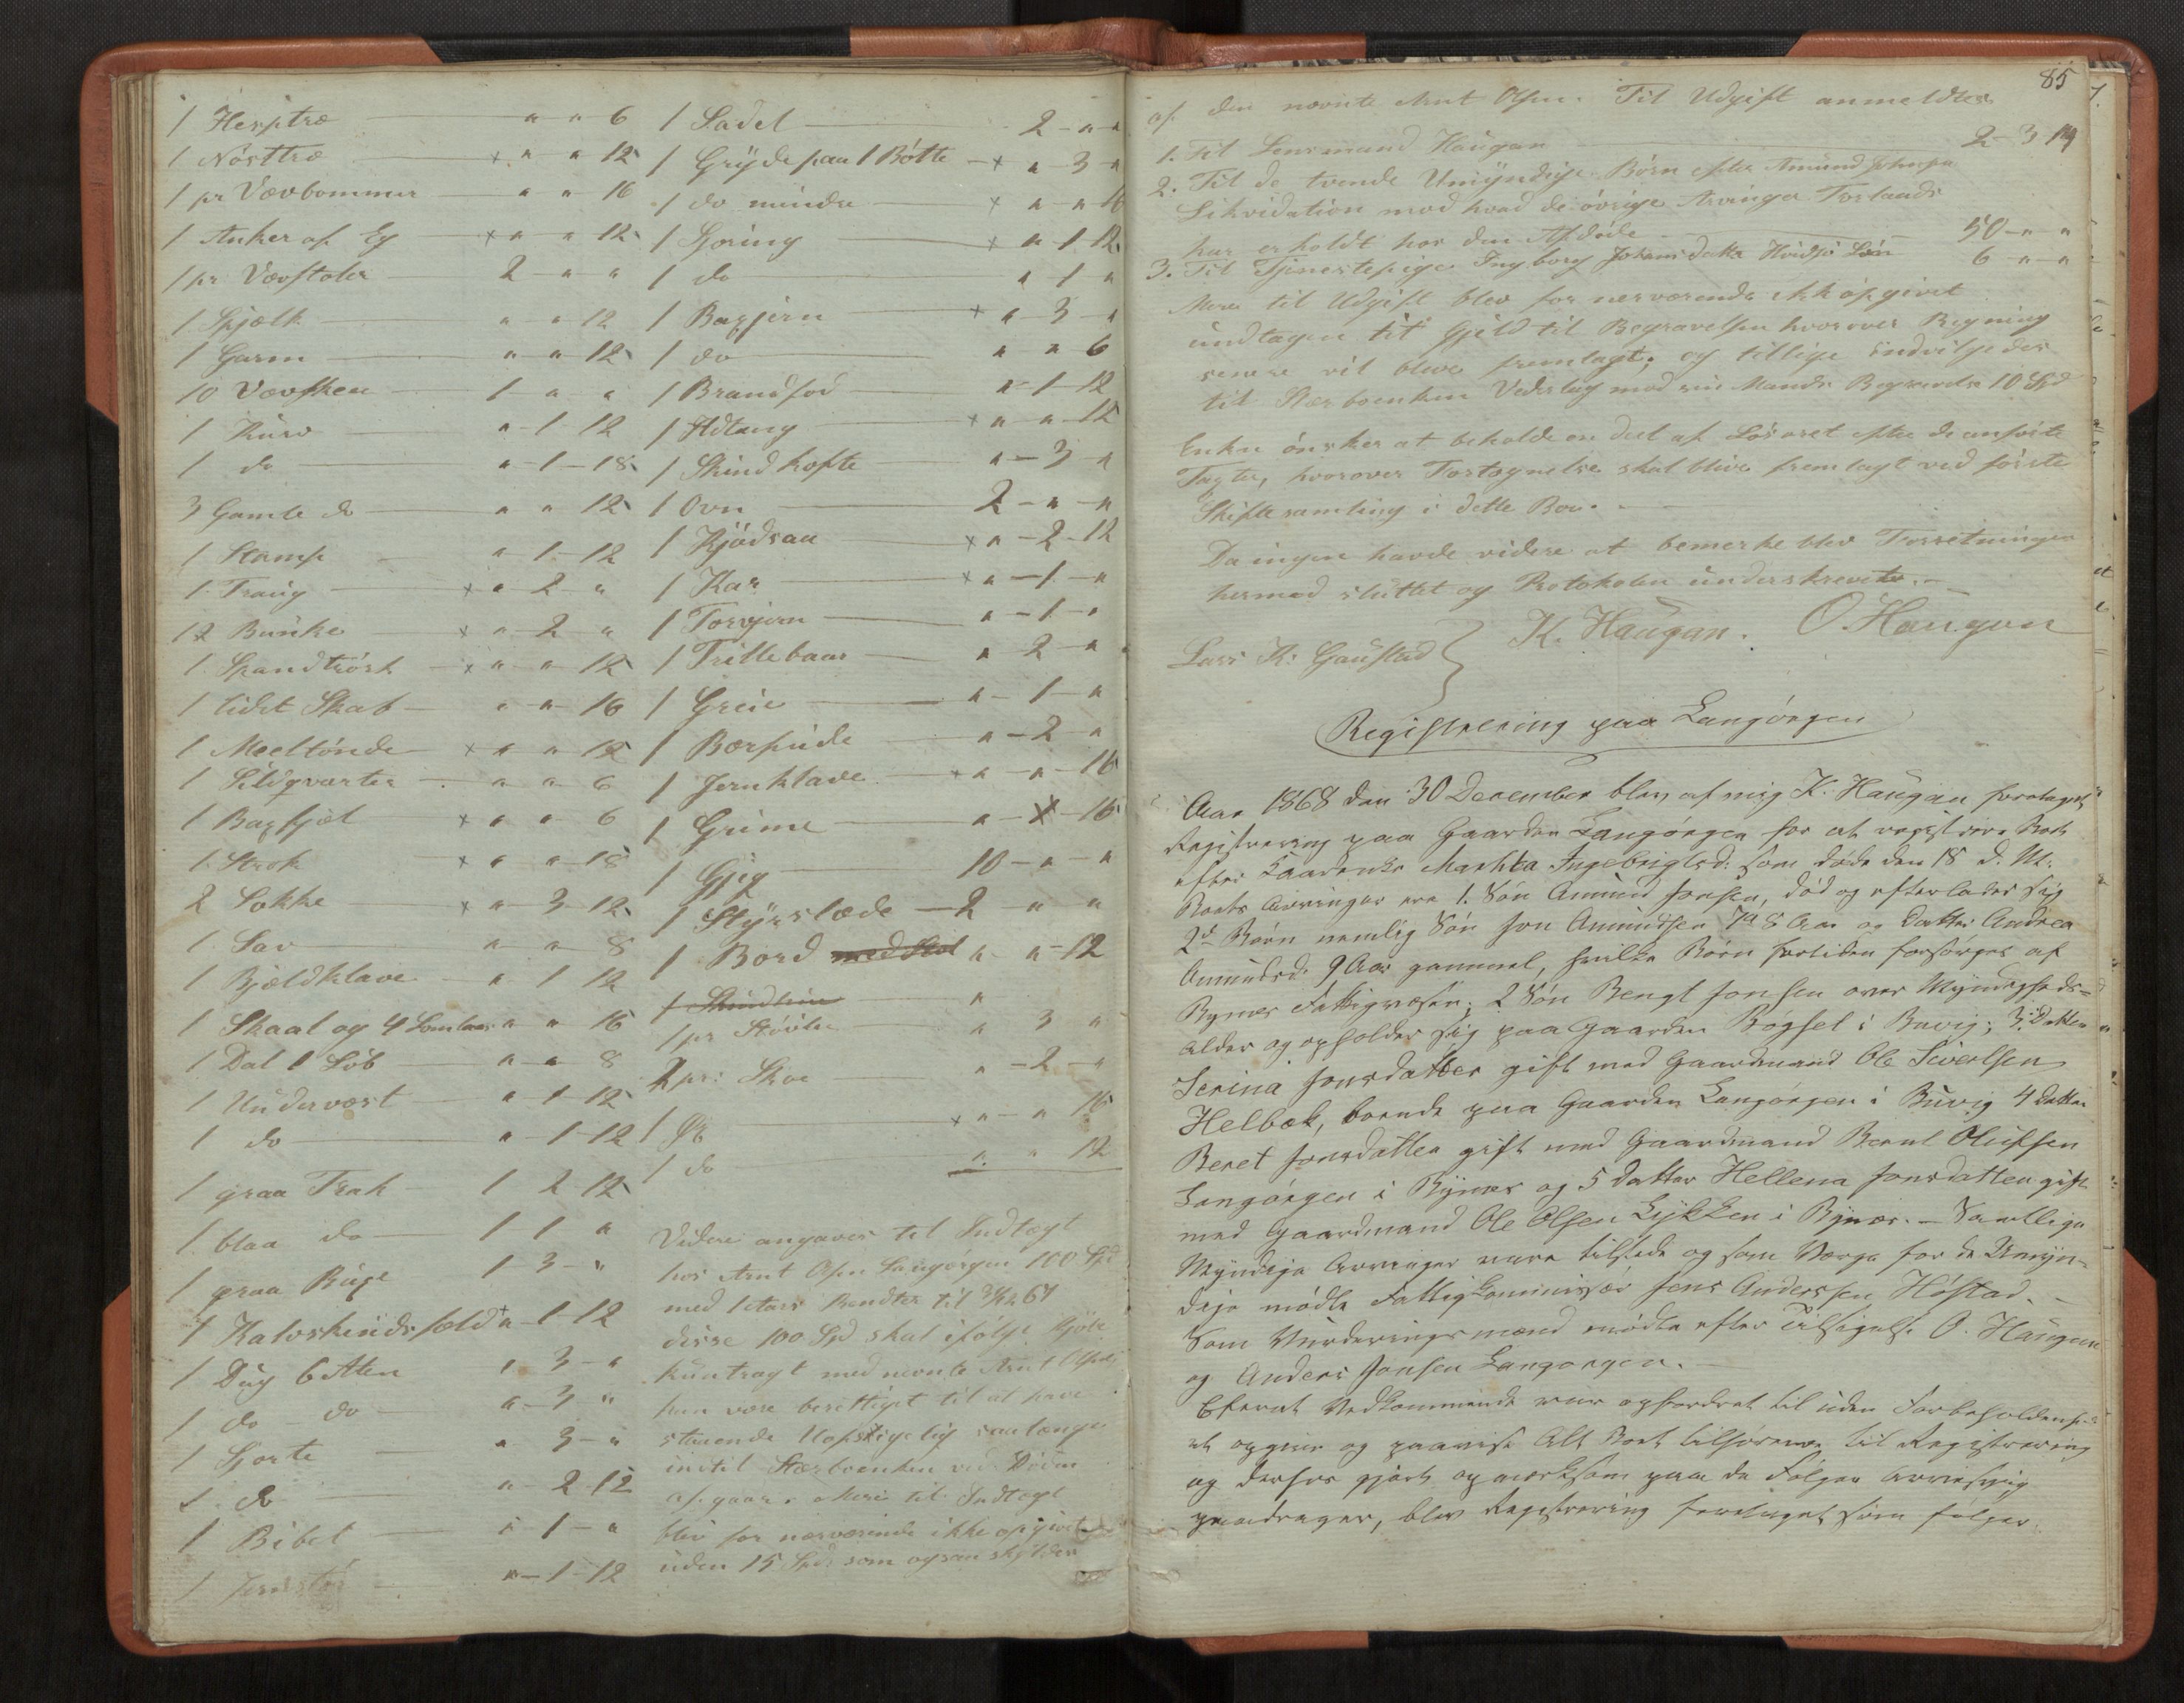 1 Hesptræ " " 6
1 Nösttræ x " " 12
1 pr Vævbommer " " 16
1 Anker af Eg x " " 12
1 pr Vævstoler 2 " "
1 Spjælk " " 12
1 Garm " " 12
10 Vævskee 1 " "
1 Kurv " 1 12
1 do " 1 18
3 Gamle do " " 12
1 Stamp " 1 12
1 Traug x " 2 "
12 Bunke x " 2 "
1 Spandtrösk x " " 12
1 lidet Skab " " 16
1 Meeltönde x " " 12
1 Sildqvarter " " 6
1 Bagfjöl x " " 6
1 Strok x " " 18
2 Sokke x " 3 12
1 Sav " " 8
1 Bjeldklave " 1 12
1 Skaal og 4 " " 16
1 Dal 1 Löb " " 8
1 Undervest " 1 12
1 do " 1 12
1 graa Trøk 1 2 12
1 blaa do 1 1 "
1 graa Buxe 1 3 "
1 Kalvskindsfeld x " 1 12
1 Dug 6 Alen " 3 "
1 do do " 3 "
1 Sjorte " 3 "
1 do " 2 12
1 Bibel " 1 "
1 " 1 12
1 Sadel 2 " "
1 Gryde paa 1 Bötte x " 3 "
1 do mindre x " " 16
1 Sporing x " 1 12
1 do " 1 "
1 Bagjern x " 3 "
1 do " " 6
1 Brandfod " 1 12
1 Ildtang x " " 12
1 Skindkofte " 3 "
1 Ovn 2 " "
1 Kjödsaa x " 2 12
1 Kar x " 1 "
1 Torvjern " 1 "
1 Trillebaar " 2 "
1 Greie " 1 "
1 Børpude " 2 "
1 Jernklave x " " 16
1 Grime " " 16
1 Gjig 10 " "
1 Styrslæde 2 " "
1 Bord med Skol " " 12
1 "
1 pr Stövler " 3 "
2 pr: Skoe " 2 "
1 Øx x " " 16
1 do " " 12
Videre angaves til Indtægt
hos Arnt Olsen Langörgen 100 Spd
med 1 Aars Rendter til 67
disse 100 Spd skal ifölge Kjöbe
kuntragt med nevnte Arnt Olsen
hun være berettiget til at have
staaende saalænge
indtil Stærboenken ved Döden
afgaar. Mere til Indtægt
blev for nærværende ikke opgivet
uden 15 Spd: som ogsaa skyldes
85
af den nævnte Arnt Olsen. Til Udgift anmeldtes
1. Til Lensmand Haugan 2-3-19
2. Til de tvende Umyndige Börn efter Amund Johnsen
Likvidation mod hvad de övrige Arvinger Forlaads
har erholdt hos den Afdöde 50 " "
3. Til Tjenestepige Ingborg Johansdatter Hvidsjö Lön 6 " "
Mere til Udgift blev for nerværende ikke opgivet
undtagen til Gjeld til Begravelsen hvorover Regning
senere vil blive fremlagt; og tillige indvilgedes
til Stærboenken Vederlag mod sin Mands Begravelse 10 Spd
Enken önsker at beholde en deel af Lösöret efter de anförte
Tagter, hvorover Fortegnelse skal blive fremlagt ved förste
Skiftesamling i dette Boe.
Da ingen havde videre at bemerke blev Forretningen
hermed sluttet og Protokolen underskrevet.
Lars K: Gaustad } K. Haugan. O. Haugan
Registrering paa Langörgen
Aar 1868 den 30 December blev af mig K. Haugan foretaget
Registrering paa Gaarden Langörgen for at registrere Boet
efter Kaarenke Marhta Ingebrigtsd: som döde den 18 d. M:
Boets Arvinger ere 1. Sön Amund Jonsen, död og efterlader sig
2de Börn nemlig Sön Jon Amundsen 8 Aar og Datter Andrea
Amundsd: 9 Aar gammel, hvilke Börn fortiden forsörges af
Bynes Fattigvæsen; 2 Sön Bengt Jonsen over Myndigheds-
alder og opholder sig paa Gaarden Bögset i Buvig; 3. Datter
Serina Jonsdatter gift med Gaardmand Ole Sivertsen
Helbæk, boende paa Gaarden Langörgen i Buvig 4 Datter
Beret Jonsdatter gift med Gaardmand Bernt Olufsen
Langörgen i Bynes og 5 Datter Hellena Jonsdatter gift
med Gaardmand Ole Olsen Lykken i Bynes. - Samtlige
Myndige Arvinger vare tilstede og som Verge for de Umyn-
dige mödte Fattigkommissær Jens Anderssen Höstad. -
Som Vurderingsmænd mödte efter Tilsigelse O. Haugan
og Anders Jonsen Langorgen. -
Efterat Vedkommende var opfordret til uden Forbeholdenhed
at opgive og paavise Alt Boet tilhörende til Registrering
og derhos gjort opmærksom paa de Fölger Arvesvig
paadrager, blev Registrering foretaget som fölger: